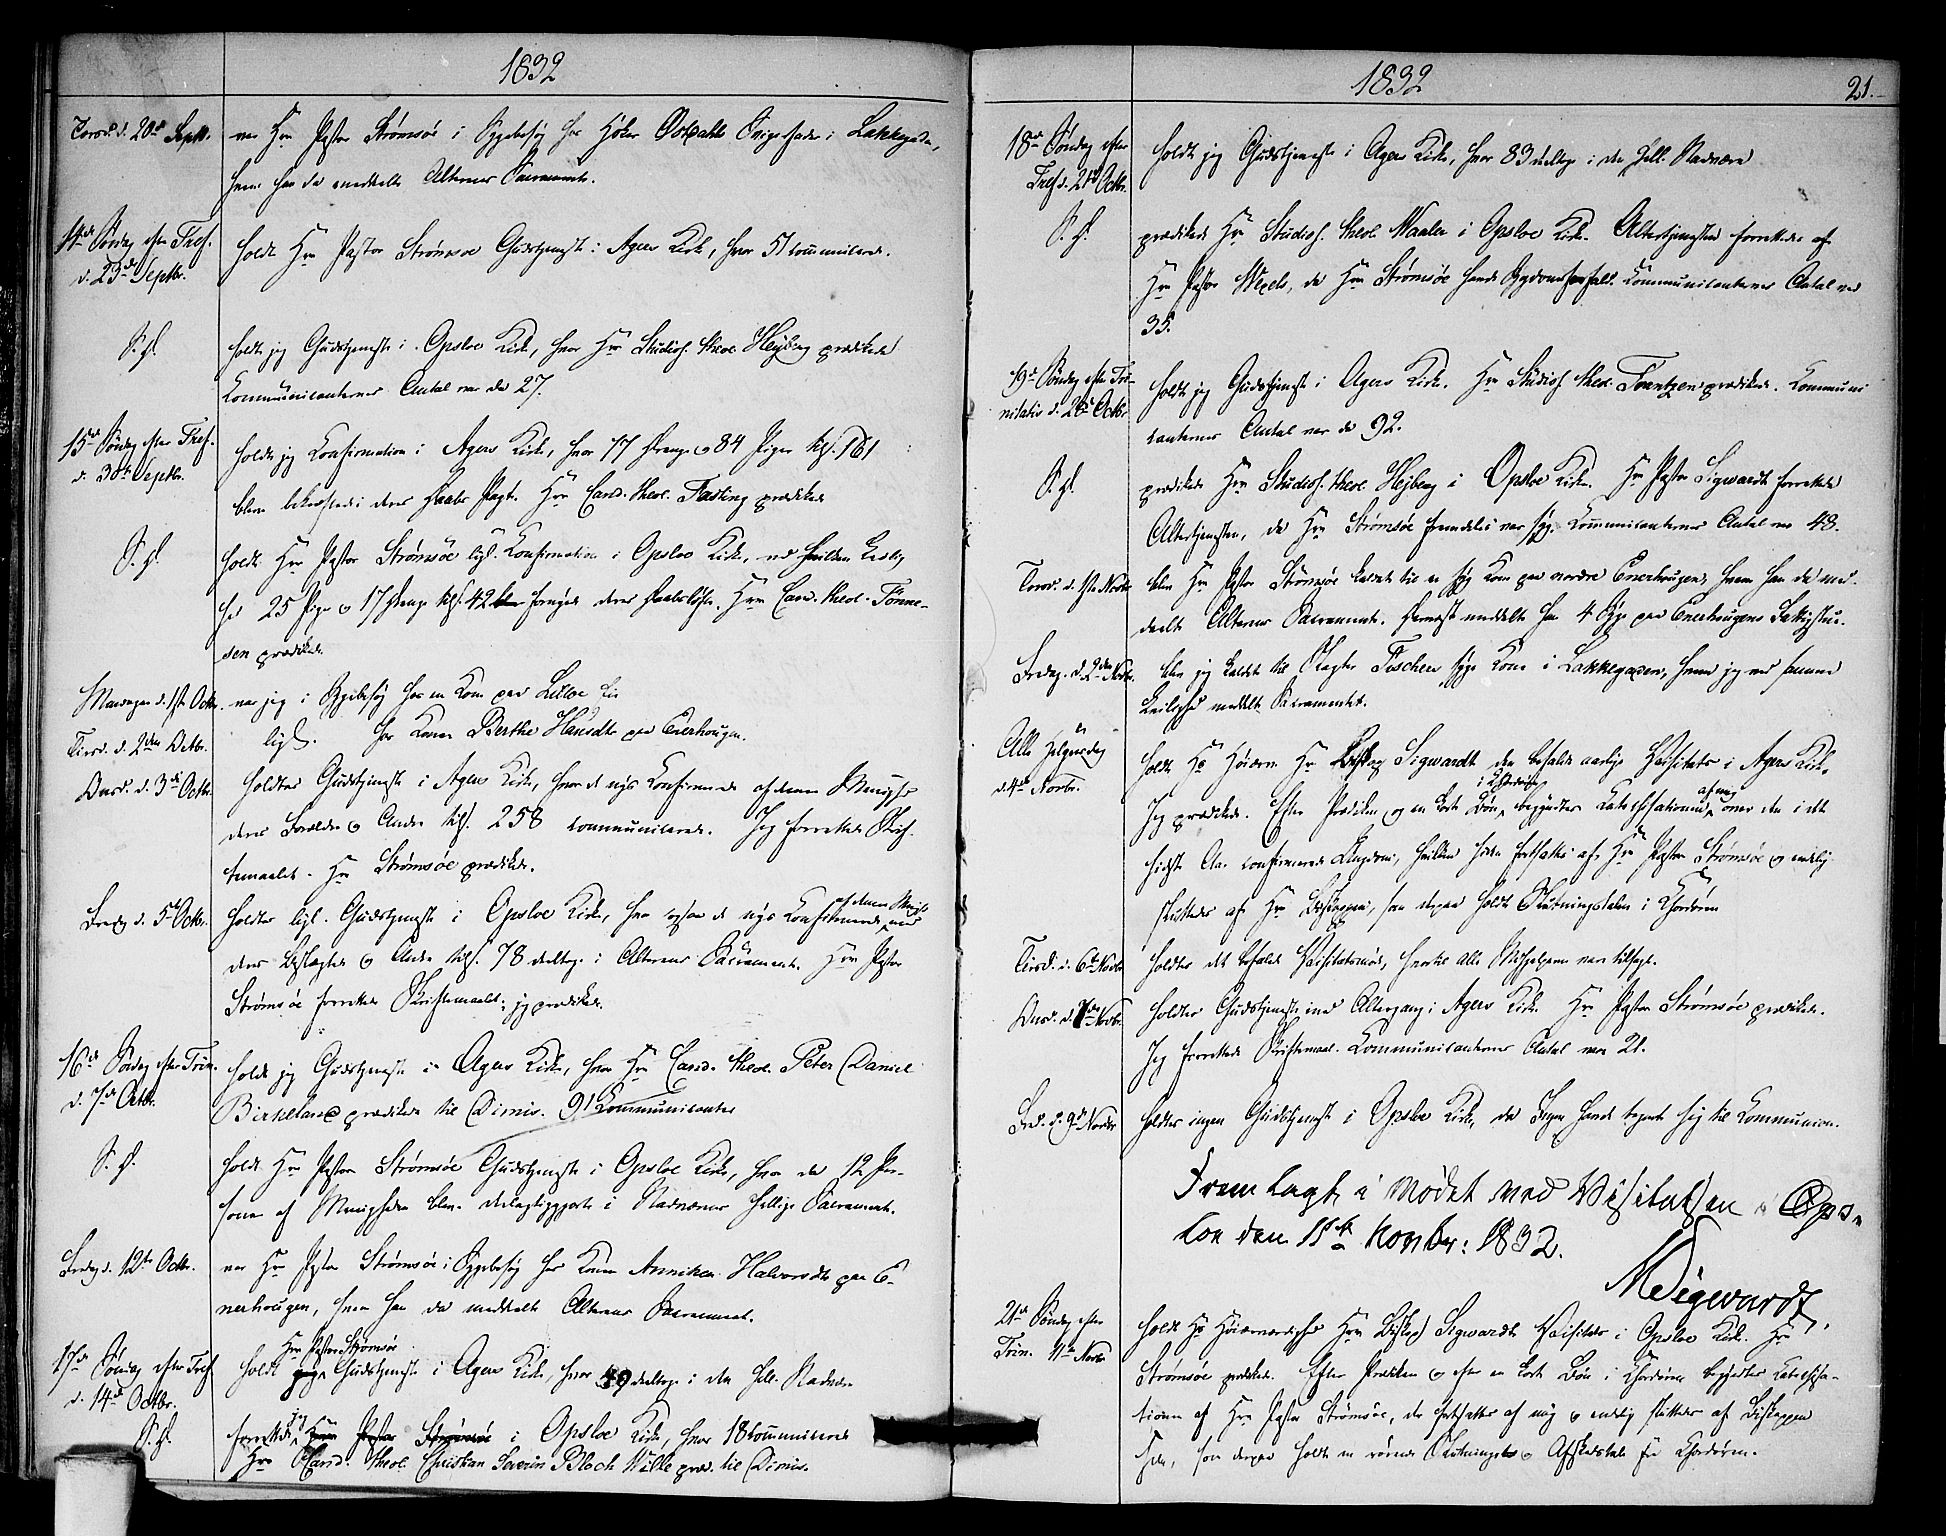 1832
Torsd. d. 20de Septbr. var Hr Pastor Strömsöe i Sygebesøg hos Høker Svigerfader i Lakkegaden,
hvem han da meddelte Alterens Sacramente.
14de Søndag efter Tref. d. 23de Septbr. holdt Hr Pastor Strömsoe Gudstjeneste i Agers Kirke, hvor 51 communicerede.
S. D. holdt jeg Gudstjeneste i Opsloe Kirke, hvor Hr Studios. theol. Hejberg prædikede
Communicanternes Antal var da 27.
15de Søndag efter Tref. d. 30te Septbr. holdt jeg Confirmation i Agers Kirke, hvor 77 Drenge og 84 Piger tils. 161
bleve bekræftede i deres Daabs Pagt. Hr Cand. theol. Fasting prædikede
S. D. holdt Hr Pastor Strömsöe ligl. Confirmation i Opsloe Kirke, ved hvilken Leilig-
hed 25 Piger og 17 Drenge tils. 42 fornyede deres Daabsløfte. Hr Cand. theol. Tönne-
sen prædikede
Mandagen d. 1ste Octbr. var jeg i Sygebesøg hos en Kone paa
Tirsd. d. 2den Octbr. ligl. hos Konen Berthe Hansdtr paa Enerhougen.
Onsd. d. 3de Octbr. holdtes Gudstjeneste i Agers Kirke, hvor de nys Confirmerede af denne Menighed
deres Forældre og Andre tils. 258 communicerede. Jeg forrettede Skrif-
temaalet. Hr Strömsöe prædikede.
Fredag d. 5te Octbr. holdtes ligl. Gudstjeneste i Opsloe Kirke, hvor ogsaa de nys Confirmerede af denne Menigh. med
deres Beslægtede og Andre tils. 78 deeltoge i Alterens Sacramente. Hr Pastor
Strömsöe forrettede Skriftemaalet. jeg prædikede.
16de Søndag efter Trin. d. 7de Octbr. holdt jeg Gudstjeneste i Agers Kirke, hvor Hr Cand. theol. Peter Daniel
Birkeland prædikede til Dimis. 91 Kommunicanter
S. D. holdt Hr Pastor Strömsöe Gudstjeneste i Opsloe Kirke, hvor da 12 Per-
soner af Menigheden bleve delagtiggjorte i Nadverens hellige Sacramente.
Fredag d. 12te Octbr. var Hr Pastor Strömsöe i Sygebesøg hos Konen Anniken Halvorsdtr paa E-
nerhougen, hvem han da meddelte Alterens Sacramente.
17de Søndag efter Tref. d. 14de Octbr. holdt Hr Pastor Strömsöe Gudstjeneste i Agers Kirke, hvor 49 deeltoge i den hell. Nadvere
S. D. forrettede jeg i Opsloe Kirke, hvor 18 communicerede
Hr Cand. theol. Christian Severin Bloch Wille præd. til Dimis.
1832
21.
18de Søndag efter Tref. d. 21de Octbr. holdt jeg Gudstjeneste i Agers Kirke, hvor 83 deeltoge i den hell. Nadvere
S. D. prædikede Hr Studios. theol. Maaler i Opsloe Kirke. Altertjenesten forrettedes af
Hr Pastor Wexels, da Hr Strömsöe havde Sygdomsforfald. Communicanternes Antal var
35.
19de Søndag efter Tri-
nitatis d. 28de Octbr. holdt jeg Gudstjeneste i Agers Kirke. Hr Studios. theol. Forentzen prædikede. Communi
canternes Antal var da 92.
S. D. prædikede Hr Studios. theol. Hejberg i Opsloe Kirke. Hr Pastor Sigwardt forrettede
Altertjenesten, da Hr Strömsöe fremdeles var syg. Communicanternes Antal var 48.
Torsd. d. 1ste Novbr. blev Hr Pastor Strömsöe kaldet til en syg Kone paa nordre Enerhougen, hvem han da med-
deelte Alterens Sacramente. Dernæst meddelte han 4 Syge paa Enerhougens Fattigstue.
Fredag. d. 2den Novbr. blev jeg kaldet til Slagter Fischers syge Kone i Lakkegaden, hvem jeg ved samme
Leilighed meddelte Sacramentet.
Alle Helgensdag d. 4de Novbr. holdt Hs Höiærv. Hr Biskop Sigwardt den befalede aarlige Visitats i Agers Kirke
Jeg prædikede. Efter Prædiken og en kort Bøn i Chordøren begyndtes Katechisationen af mig over den i det
sidste Aar confirmerede Ungdom, hvilken siden fortsattes af Hr Pastor Strömsöe og endelig
sluttedes af Hr Biskoppen, som derpaa holdt Slutningstalen i Chordøren
Tirsd. d. 6te Novbr. holdtes det befalede Visitatsmøde, hvortil alle Medhjelperne vare tilsagte.
Onsd. d. 7de Novbr. holdtes Gudstjeneste med Altergang i Agers Kirke. Hr Pastor Strömsöe prædikede.
Jeg forrettede Skriftemaal. Communicanternes Antal var 21.
Fred. d. 9de Novbr. holdtes ingen Gudstjeneste i Opsloe Kirke, da Ingen havde tegnet sig til Communion.
Fremlagt i Mødet ved Visitatsen i Ops-
loe den 11te Novbr: 1832.
MSigwardt.
21de Søndag efter Trin. 11te Novbr. holdt Hs Höiærværdighed Hr Biskop Sigwardt Visitats i Opsloe Kirke. Hr
Strömsöe prædikede. Efter Prædiken og efter en kort Bøn i Chordøren begyndtes Katechisa-
tionen af Hr Pastor Strömsöe, der fortsattes af mig og endelig sluttedes af Biskoppen
som derpaa holdt en rørende Slutnings og Afskedstale fra Chordøren.